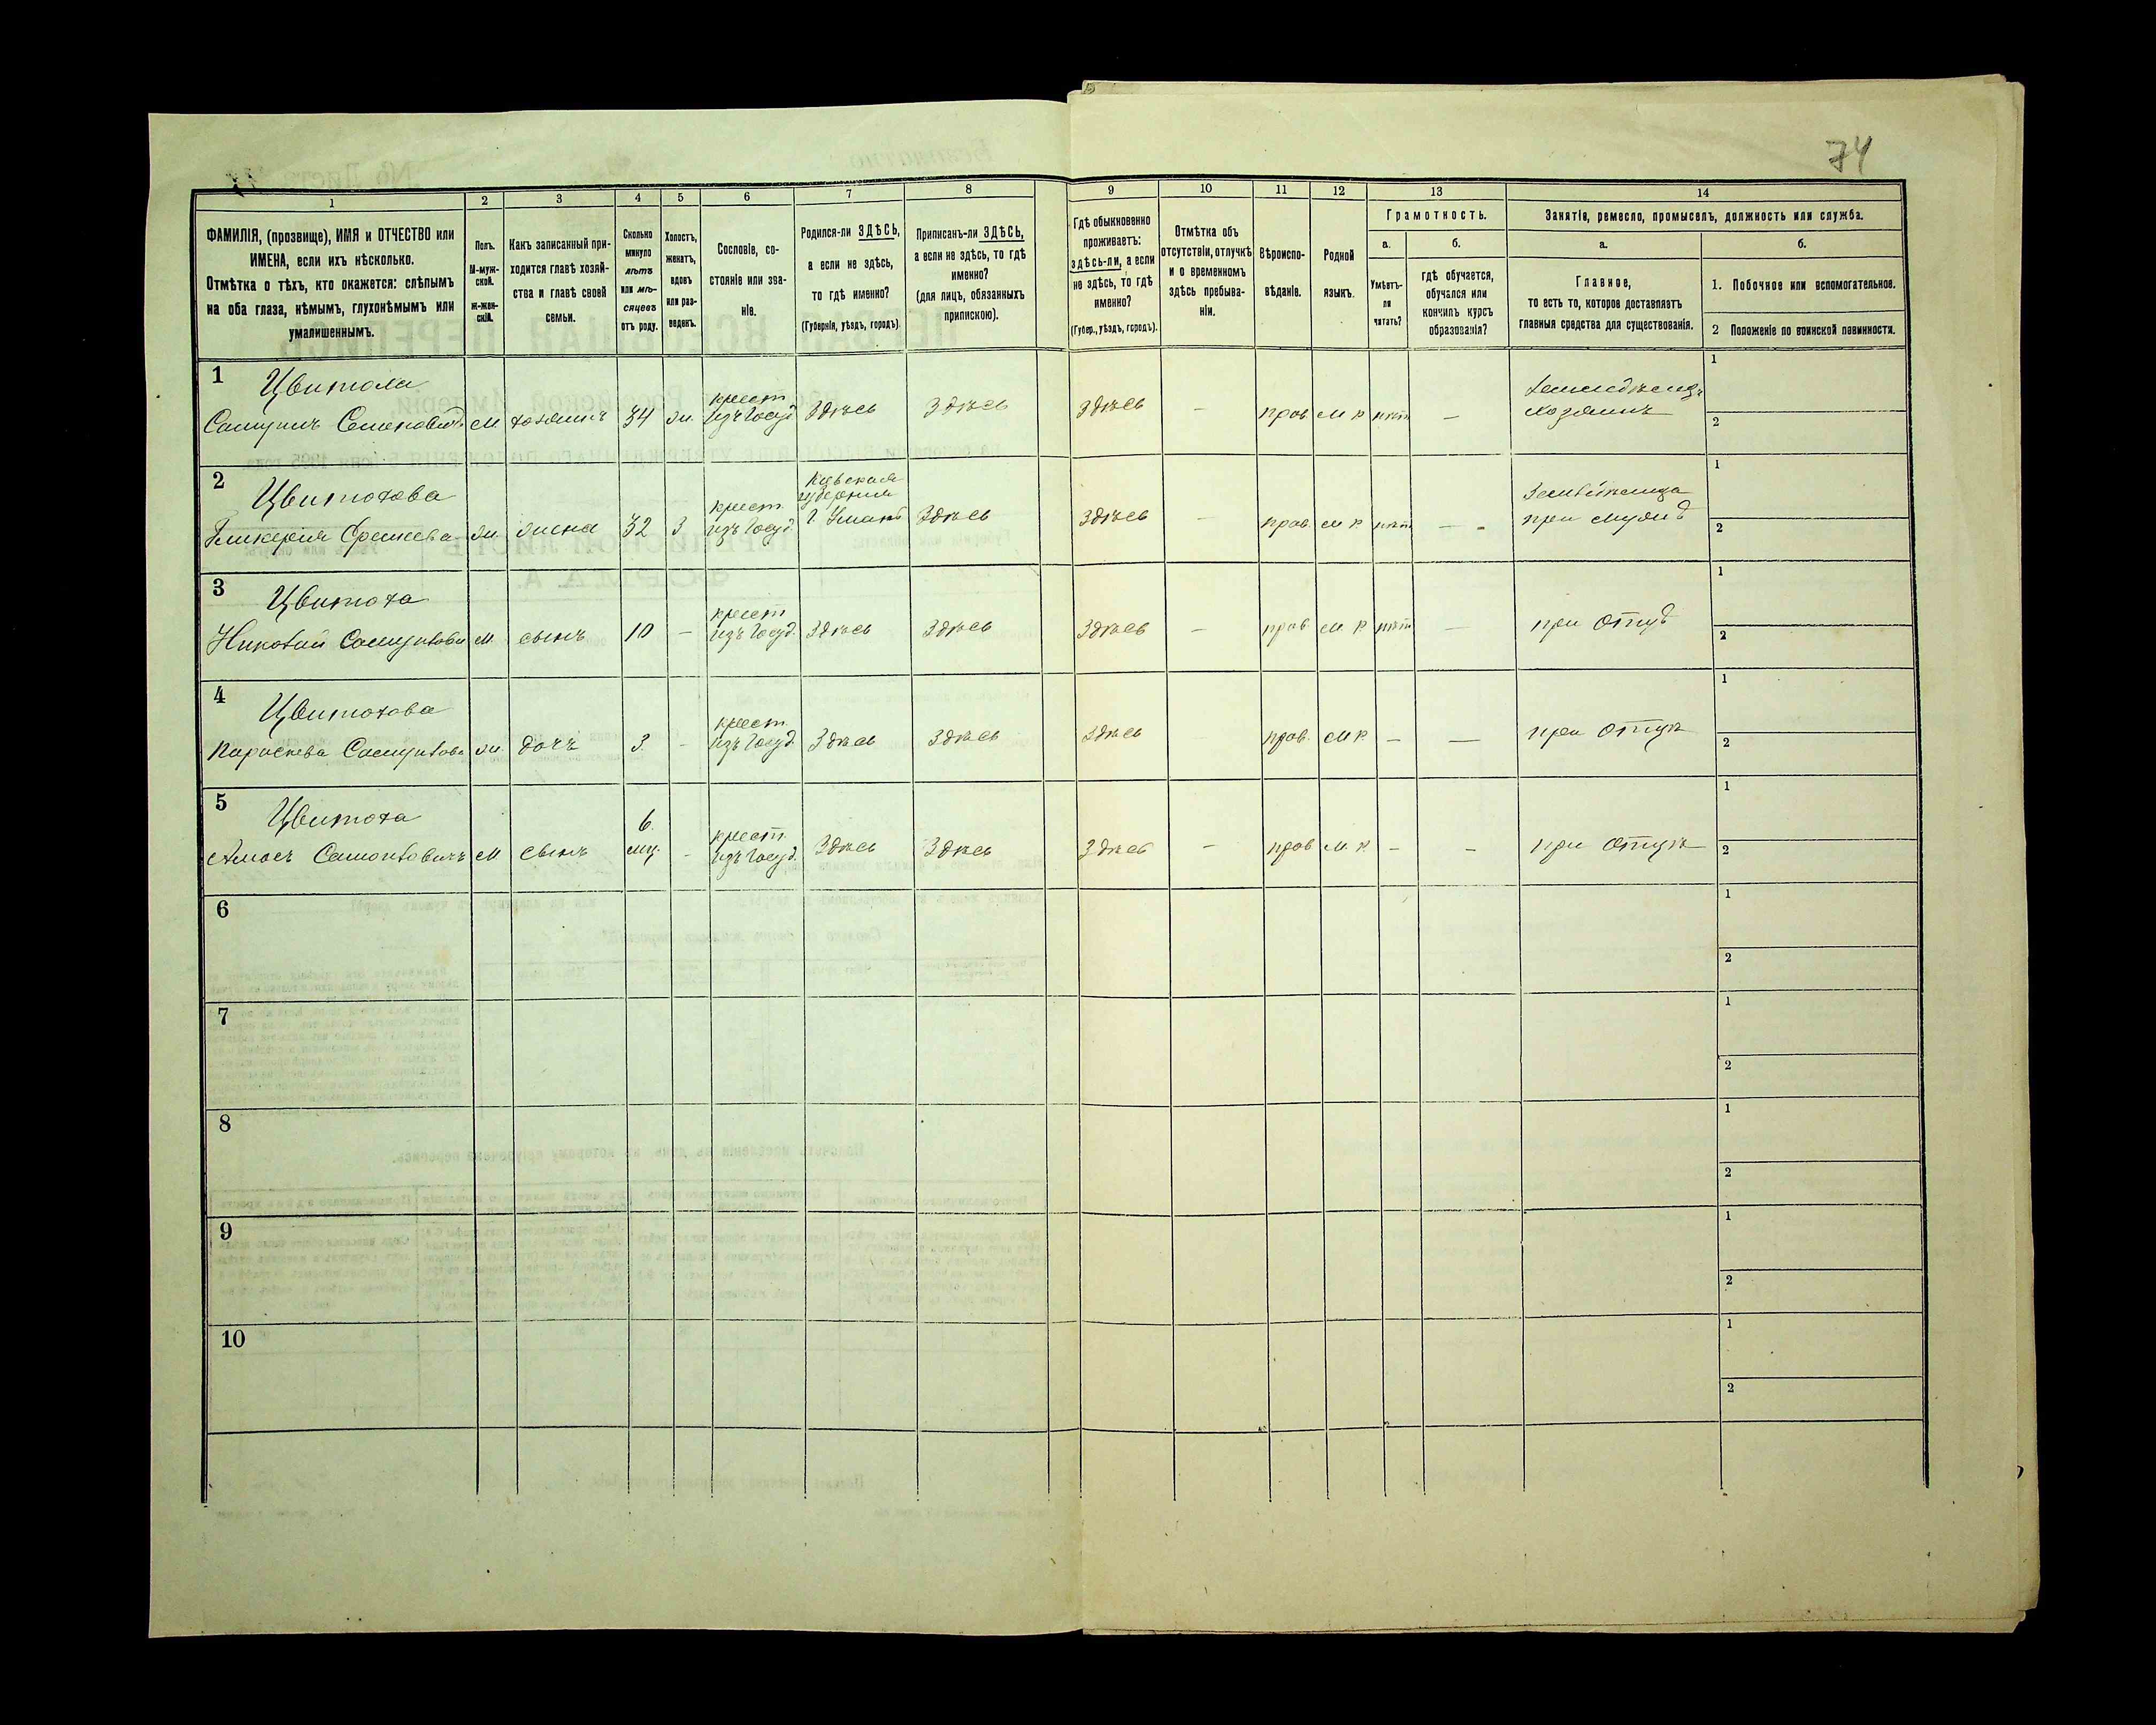 74
1 2 3 4 5 6 7 8 9 10 11 12 13 14
ФАМИЛІЯ, (прозвище), ИМЯ и ОТЧЕСТВО или
ИМЕНА, если ихъ нѣсколько.
Отмѣтка о тѣхъ, кто окажется: слѣпымъ
на оба глаза, нѣмымъ, глухонѣмымъ или
умалишеннымъ.
Полъ.
М-муж-
ской.
Ж-жен-
скій.
Какъ записанный при-
ходится главѣ хозяй-
ства и главѣ своей
семьи.
Сколько
минуло
лѣтъ
или мѣ-
сяцевъ
отъ роду.
Холостъ,
женатъ,
вдовъ
или раз-
веденъ.
Сословіе, со-
стояніе или зва-
ніе.
Родился-ли ЗДѢСЬ,
а если не здѣсь,
то гдѣ именно?
(Губернія, уѣздъ, городъ)
Приписанъ-ли ЗДѢСЬ,
а если не здѣсь, то гдѣ
именно?
(для лицъ, обязанныхъ
припискою).
Гдѣ обыкновенно
проживаетъ:
здѣсь-ли, а если
не здѣсь, то гдѣ
именно?
(Губер., уѣздъ, городъ).
Отмѣтка объ
отсутствіи, отлучкѣ
и о временномъ
здѣсь пребыва-
ніи.
Вѣроиспо-
вѣданіе.
Родной
языкъ.
Грамотность.
а.
б.
Умѣетъ-
ли
читать?
гдѣ обучается,
обучался или
кончилъ курсъ
образованія?
Занятіе, ремесло, промыселъ, должность или служба.
а.
б.
Главное,
то есть то, которое доставляетъ
главныя средства для существованія.
1. Побочное или вспомогательное.
2 Положеніе по воинской повинности.
1
Самуилъ Семеновичъ
м хозяинъ 34 ж.
крест
изъ госуд
Здѣсь Здѣсь Здѣсь — прав м р нѣт —
хозяинъ
1
2
2
Цвитохова
жи жена 32 з
крест.
изъ госуд.
Кіевская
губернія
г. Умань
Здѣсь Здѣсь — прав. м р нѣт — -
при мужѣ
1
2
3
Цвитоха
Николай
м. сынъ 10 —
крест
изъ госуд.
Здѣсь Здѣсь Здѣсь — прав. м р. нѣт —
при отцѣ
1
2
4
Цвитохова
Параскева
жи дочь 3. -
крест.
изъ госуд.
Здѣсь Здѣсь Здѣсь прав. м р. — —
при отцѣ
1
2
5
Цвитоха
м сынъ
6.
мц. -
крест.
изъ госуд.
Здѣсь Здѣсь Здѣсь — прав м. р. — —
при отцѣ
1
2
6
1
2
7
1
2
8
1
2
9
1
2
10
1
2